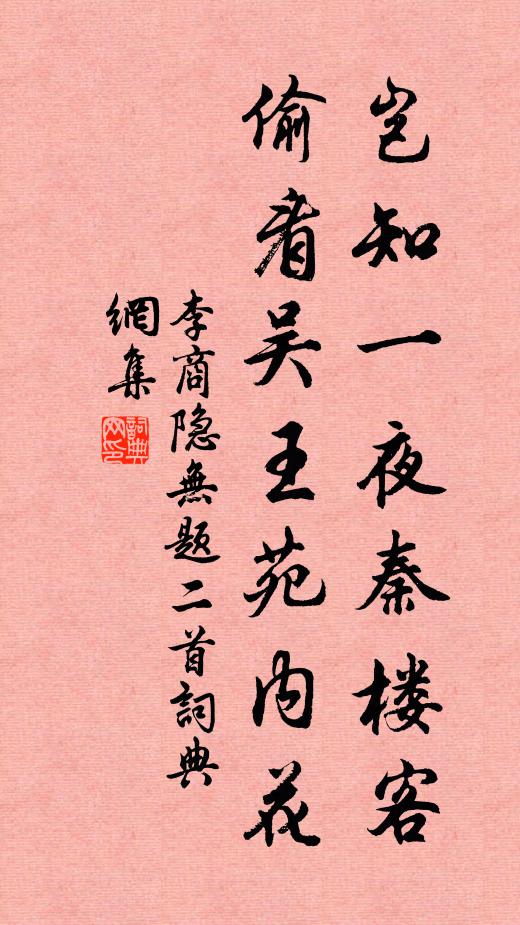 岂知一夜秦楼客
偷看吴王苑内花
李商隐無题二首詞典
網集
詞典
网印